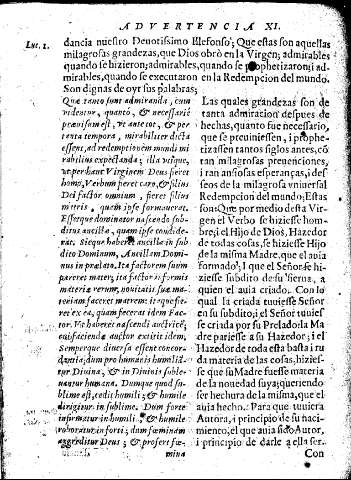 ADVERTENCIA XI.
Luc. 1.
dancia nuestro Deuotissimo Ilefonso; Que estas son aquellas
milagrosas grandezas, que Dios obrò en la Virgen; admirables
quando se hizieron; admirables, quando se prophetizaron; i ad-
mirables, quando se executaron en la Redempcion del mundo.
Son dignas de oyr sus palabras;
Quæ tanto sunt admiranda, cum
videntur, quantò, & quammirabilia
præuisum est, vt
tanta tempora, mirabiliter dicta
essent, ad redemptionem mundi mi
rabilius expectanda; illa vtique,
vt per hanc Virginem Deus fieret
homo, Verbum fieret caro, & filius
Dei factor omnium, fieret filius
matris, quam ipse formauerat.
Esseque dominator nascendo sub-
ditus ancillæ, quam ipse condide-
rat. Sicque haberet ancilla in sub
dito Dominum, Ancillam Domi-
nus in prælato. Ita factorem suum
pareret mater; ita factoris formis
materia rerum, nouitatis suæ ma-
teriam faceret matrem: ita quæ fie-
ret ex ea, quam fecerat idem Fac-
tor. Vt haberet nascendi auctricē;
cui faciendæ auctor extitit idem.
Semperque diuersa essent concor-
dantia; dum pro humanis humilia
tur Diuina, & in Diuinis suble-
uantur humana. Dumque quod su-
blime est, cedit humili; & humile
dirigitur in sublime. Dum forte
infirmatur in humili, & humile
roboratur in forti; dum fœminam
aggreditur Deus; & profert fœ-
mina
Las quales grandezas son de
tanta admiracion despues de
hechas, quanto fue necessario,
que se preuiniessen, i prophe-
tizassen tantos siglos antes, cõ
tan milagrosas preuenciones,
i tan ansiosas esperanças, i de-
seos de la milagrosa vniuersal
Redempcion del mundo; Estas
son: Que por medio desta Vir-
gen el Verbo se hiziesse hom-
bre; i el Hijo de Dios, Hazedor
de todas cosas, se hiziesse Hijo
de la misma Madre, que el auia
formado; I que el Señor se hi-
ziesse subdito de su sierua, a
quien el auia criado. Con lo
qual la criada tuuiesse Señor
en su subdito; i el Señor tuuiesse
se criada por su Prelado: la Ma
dre pariesse a su Hazedor; i el
Hazedor de toda esta basta i ru
da materia de las cosas, hizies-
se que su Madre fuesse materia
de la nouedad suya; queriendo
ser hechura de la misma, que el
auia hecho. Para que tuuiera
Autora, i principio de su naci-
miento; el que auia sido Autor,
i principio de darle a ella ser.
Con